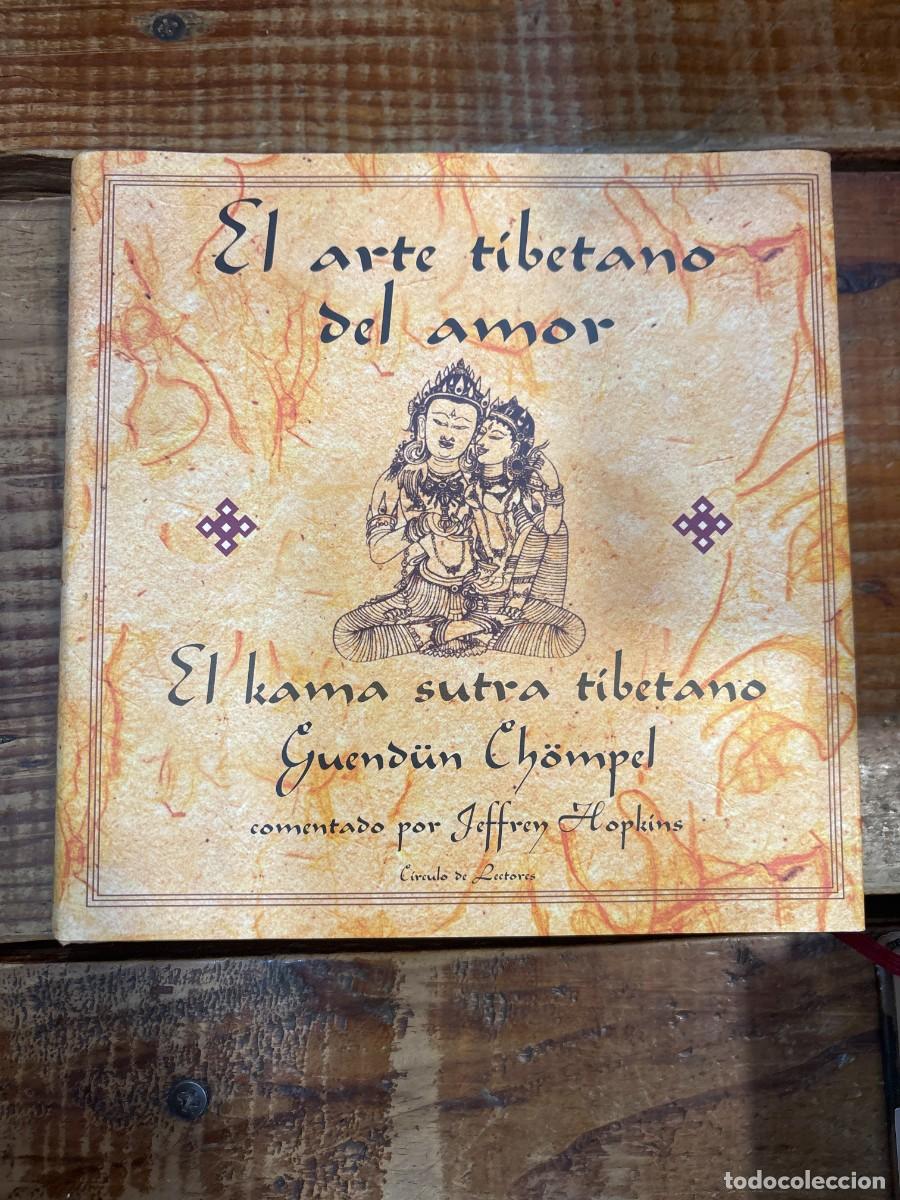 El arte tibetano
del amor
El kama sutra tibetano
Guendün Chömpel
comentado por Jeffrey Hopkins
Círculo de Lectores
todocoleccion